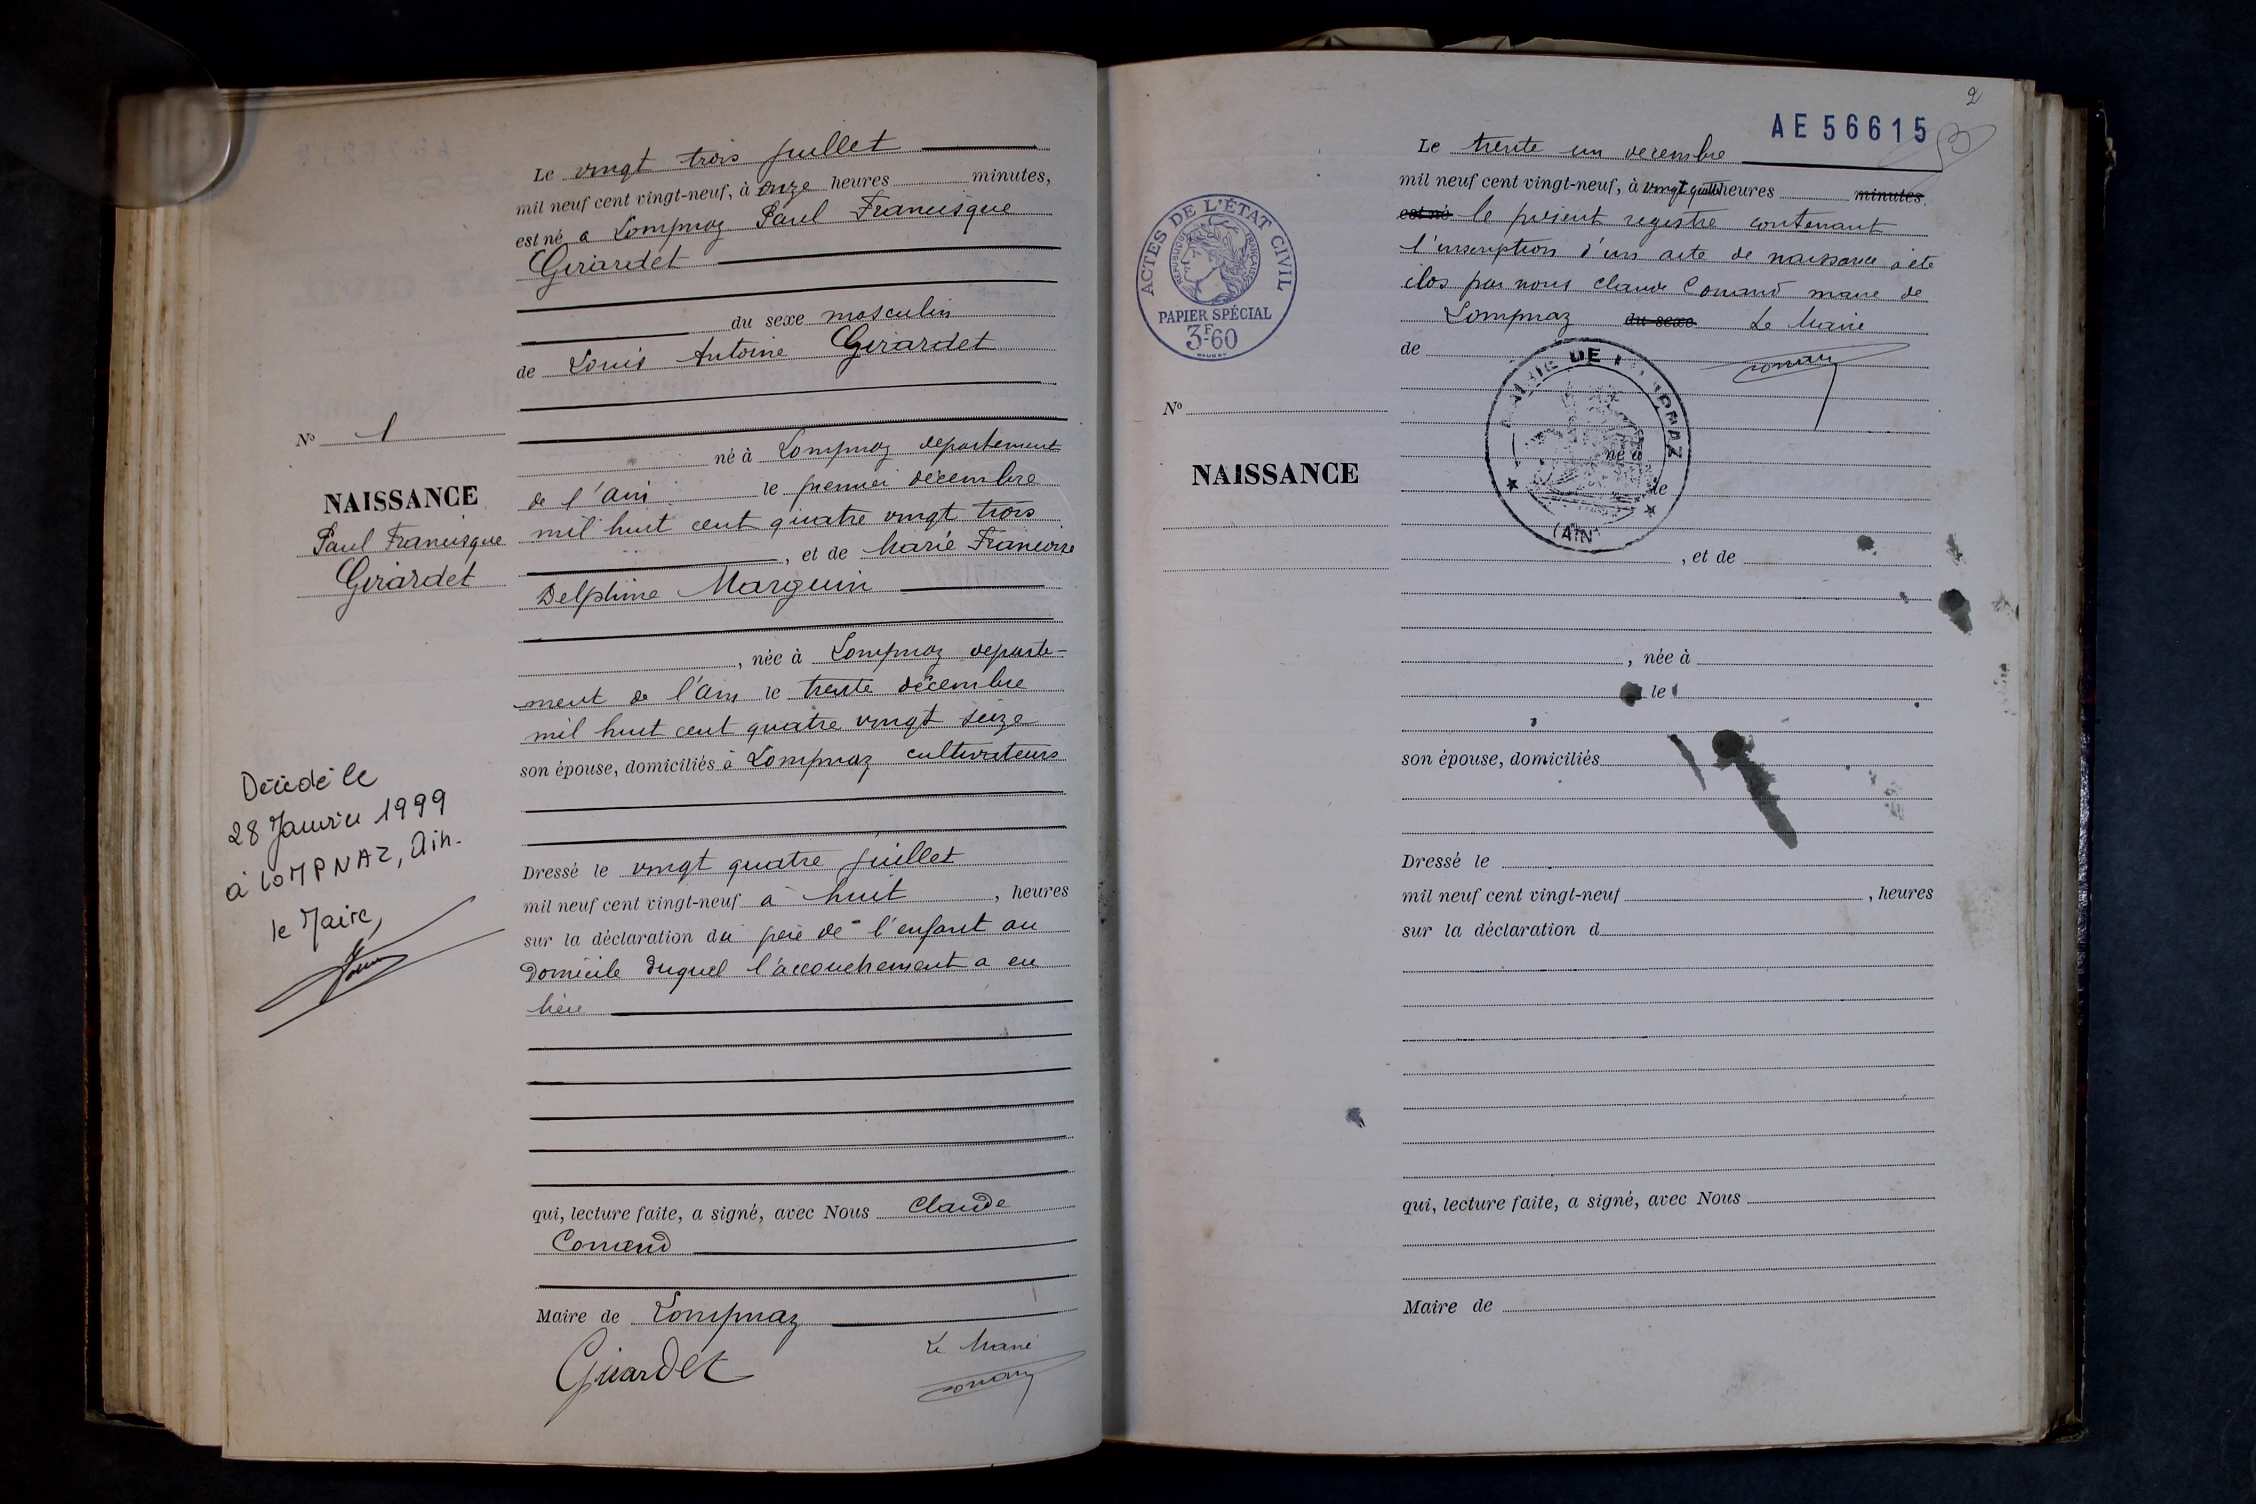 Le vingt trois juillet
mil neuf cent vingt-neuf, à onze heures minutes,
est né a Lompnaz Paul Francisque
Girardet
du sexe masculin
de Louis Antoine Girardet
né à Lompnaz departement
de l'Ain le premier décembre
mil huit cent quatre vingt trois
, et de Marie Francoise
Delphine Marguin
, née à Lompnaz departe-
ment de l'Ain le trente décembre
mil huit cent quatre vingt seize
son épouse, domiciliés à Lompnaz cultivateurs
Dressé le vingt quatre juillet
mil neuf cent vingt-neuf a huit , heures
sur la déclaration du père de l'enfant au
domicile duquel l'accouchement a eu
lieu
qui, lecture faite, a signé, avec Nous Claude
Comand
Maire de Lompnaz
Girardet
Le Maire
No 1
NAISSANCE
Paul Francisque
Girardet
Décédé le
28 Janvier 1999
à LOMPNAZ, Ain.
le Maire,
2
AE 56615
ACTES DE L'ÉTAT CIVIL
RÉPUBLIQUE FRANÇAISE
PAPIER SPÉCIAL
3F60
No
NAISSANCE
Le trente un decembre
mil neuf cent vingt-neuf, à vingt quatre heures minutes
est né le présent registre contenant
l'inscription d'un acte de naissance a été
clos par nous Claude Comand maire de
Lompnaz du sexe Le Maire
de
MAIRIE DE LOMPNAZ
(AIN)
né à
le
, et de
, née à
le
son épouse, domiciliés
Dressé le
mil neuf cent vingt-neuf , heures
sur la déclaration d
qui, lecture faite, a signé, avec Nous
Maire de